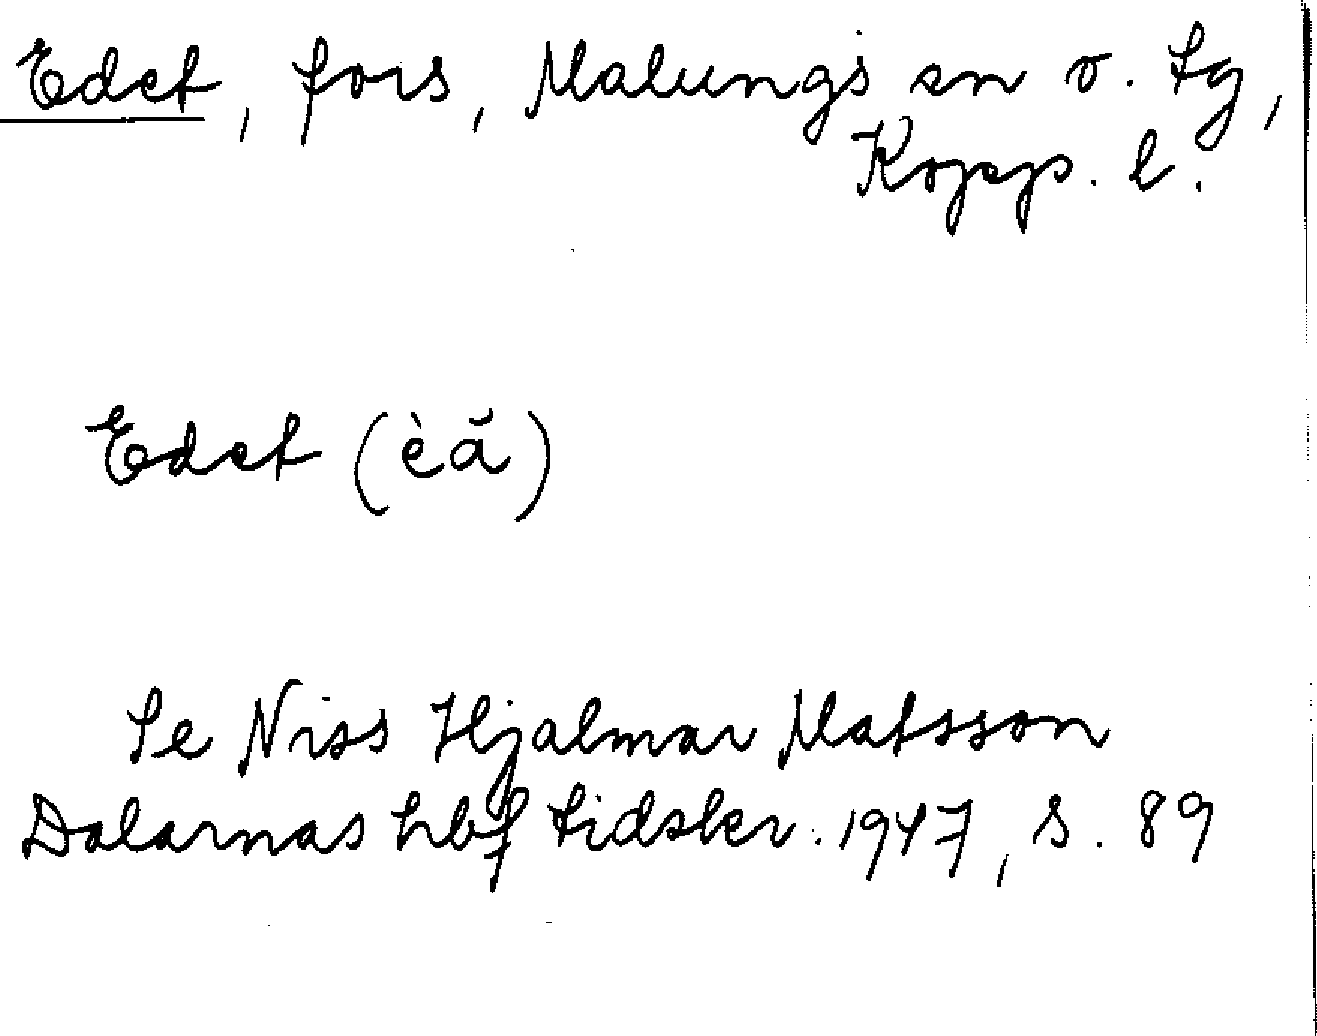 Edet, fors, Malungs sn o. tg,
Kopp. l.
Edet (èă)
Se Niss Hjalmar Matsson
Dalarnas hbf tidskr. 1947, s. 89